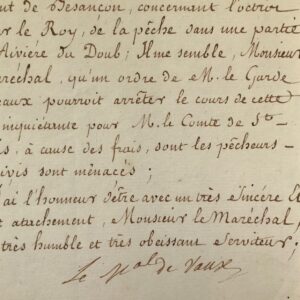 nt de Besançon, concernant l'octroi
r le Roy, de la pêche dans une partie
Rivière du Doub; Il me semble, Monsieur
aréchal, qu'un ordre de M. le Garde
eaux pourroit arrêter le cours de cette
inquiétante pour M. le Comte de St-
is, à cause des frais, dont les pêcheurs-
ivis sont menacés;
J'ai l'honneur d'être avec un très sincère et
t atachement, Monsieur le Maréchal,
très humble et très obeissant serviteur;
Le Mal de Vaux